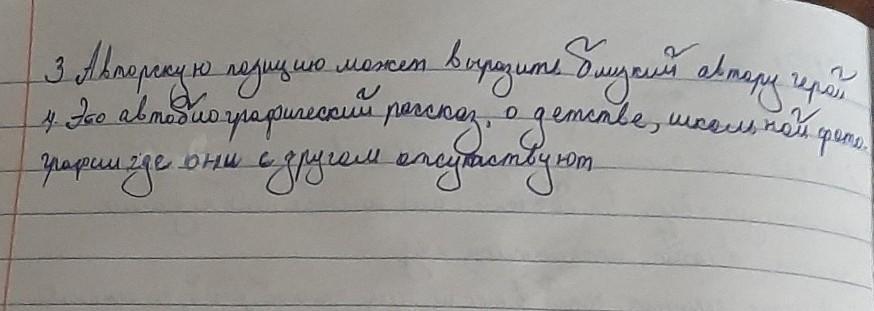 3 Авторскую позицию может выразить близкий автору герой
4. Это автобиографический рассказ, о детстве, школьной фото-
графии где они с другом отсутствуют